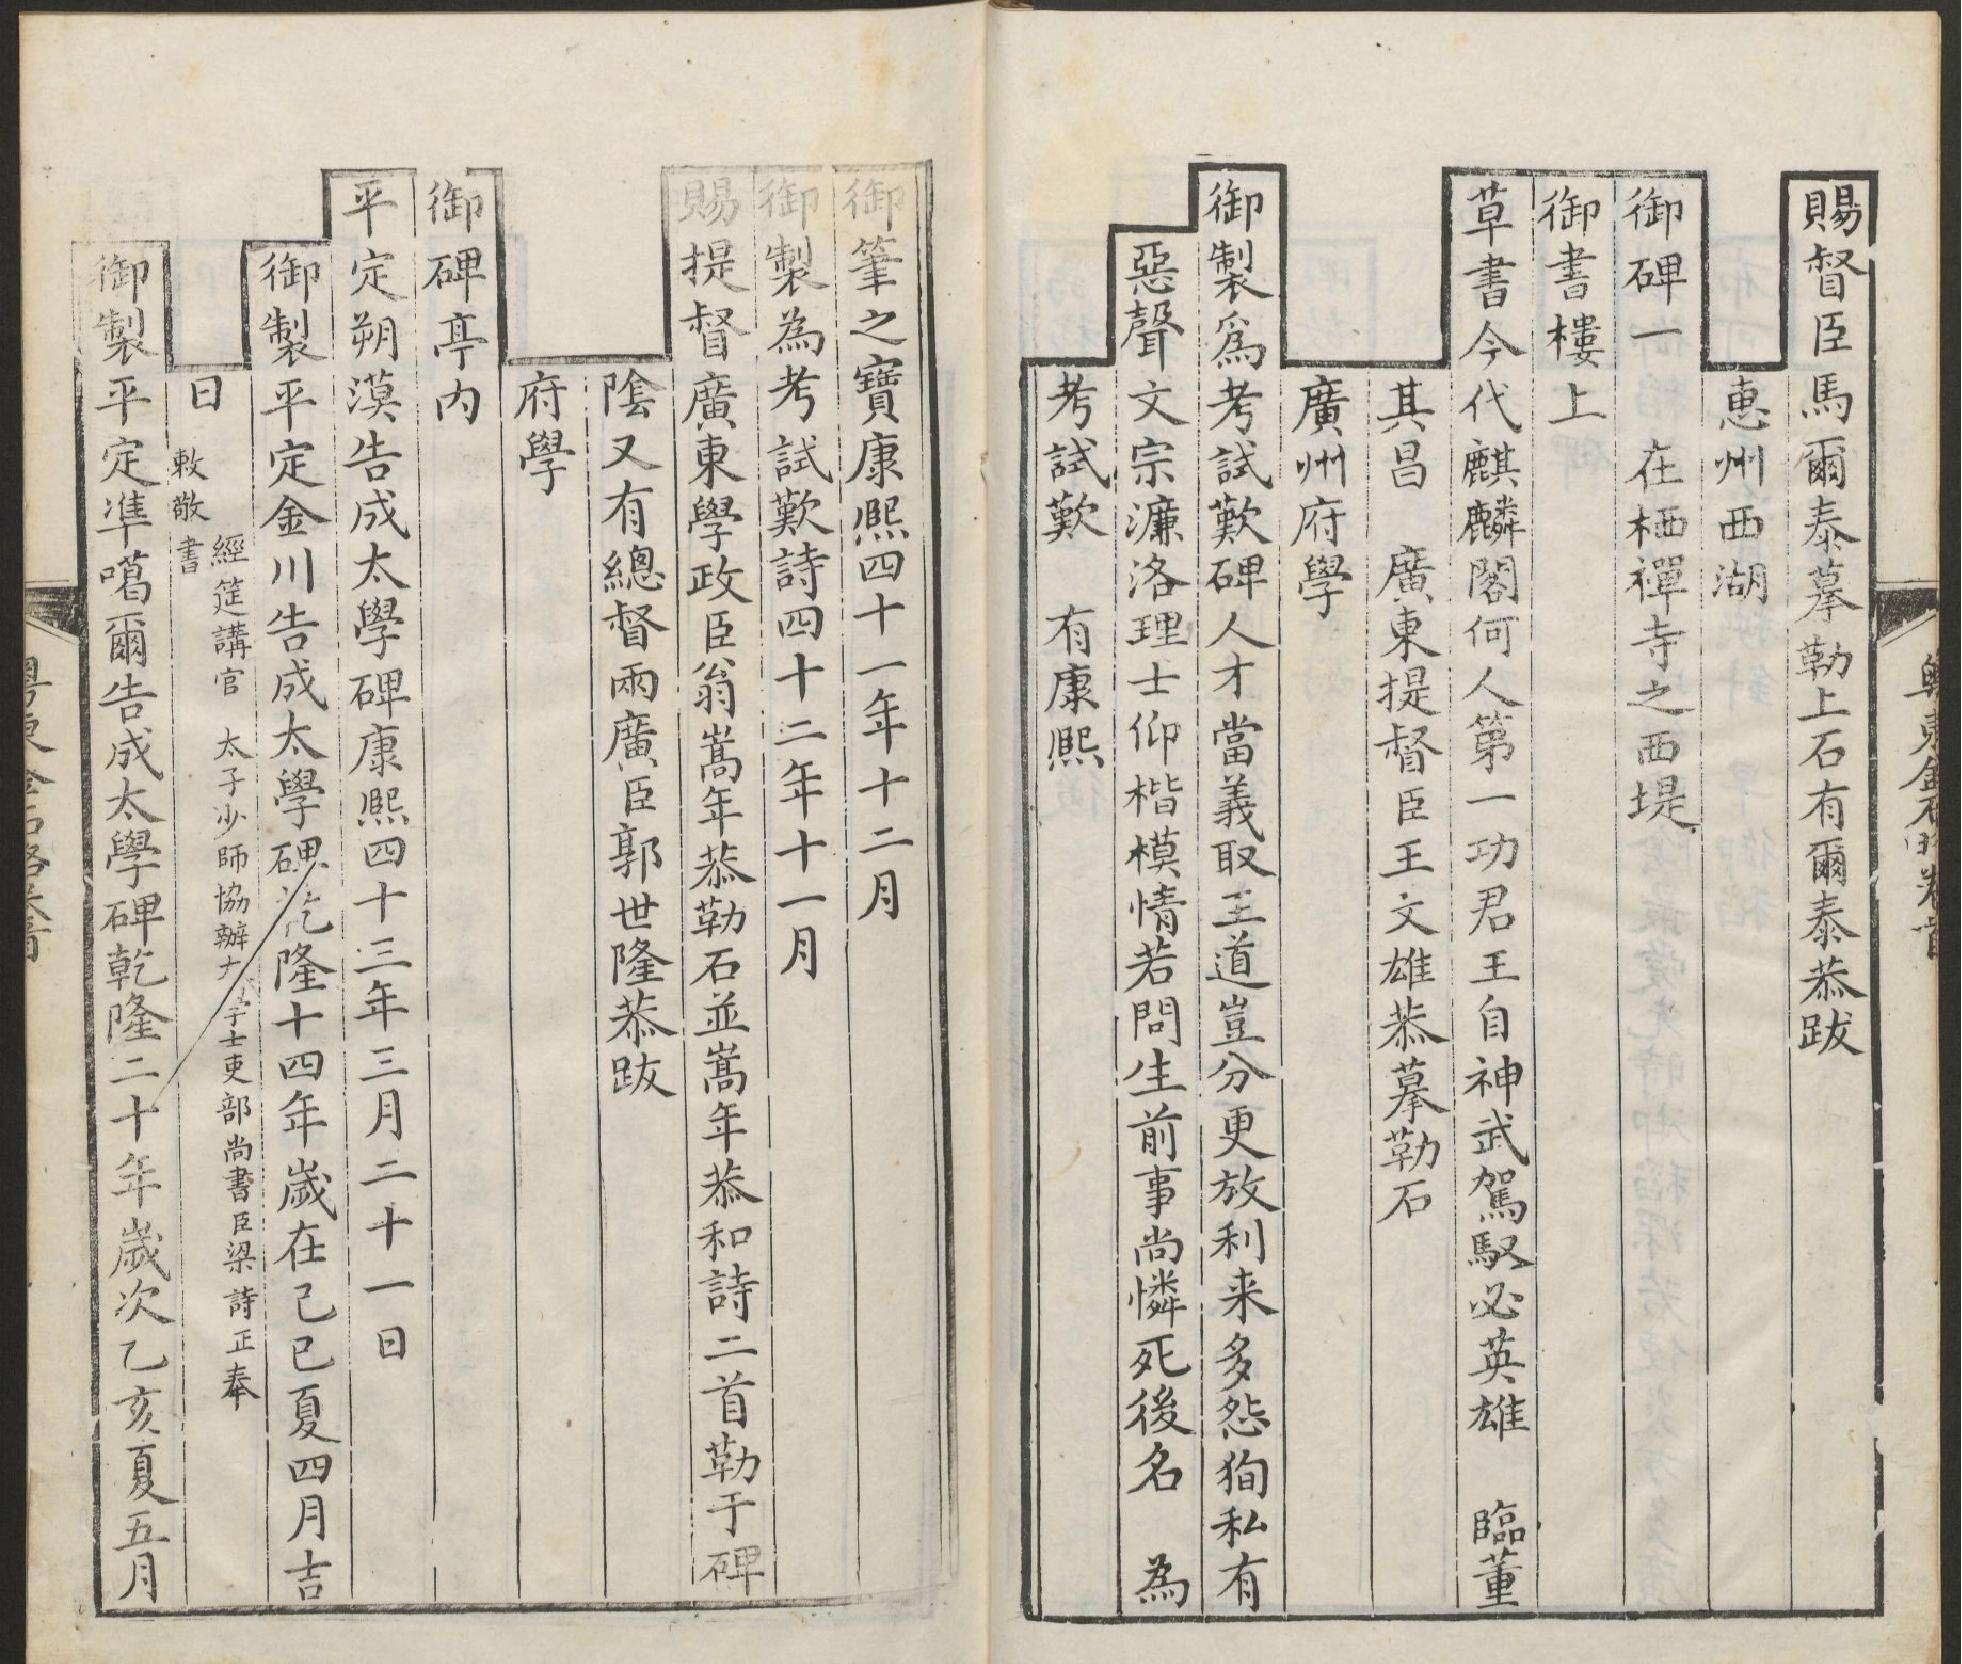 賜督臣馬爾泰摹勒上石有爾泰恭跋
惠州西湖
御碑一 在栖禪寺之西堤
御書樓上
草書今代麒麟閣何人第一功君王自神武駕馭必英雄 臨董
其昌 廣東提督臣王文雄恭摹勒石
廣州府學
御製爲考試歎碑人才當義取王道豈分更放利来多怨狥私有
惡聲文宗濂洛理士仰楷模情若問生前事尚憐死後名 為
考試歎 有康熙
御筆之寶康熙四十一年十二月
御製為考試歎詩四十二年十一月
賜提督廣東學政臣翁嵩年恭勒石並嵩年恭和詩二首勒于碑
陰又有總督兩廣臣郭世隆恭跋
府學
御碑亭內
平定朔漠告成太學碑康熙四十三年三月二十一日
御製平定金川告成太學碑乾隆十四年歲在己巳夏四月吉
日 經筵講官 太子少師協辦大學士吏部尚書臣梁詩正奉
敕敬書
御製平定準噶爾告成太學碑乾隆二十年歲次乙亥夏五月